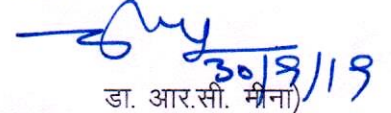 30/9/19
डा. आर.सी. मीना)